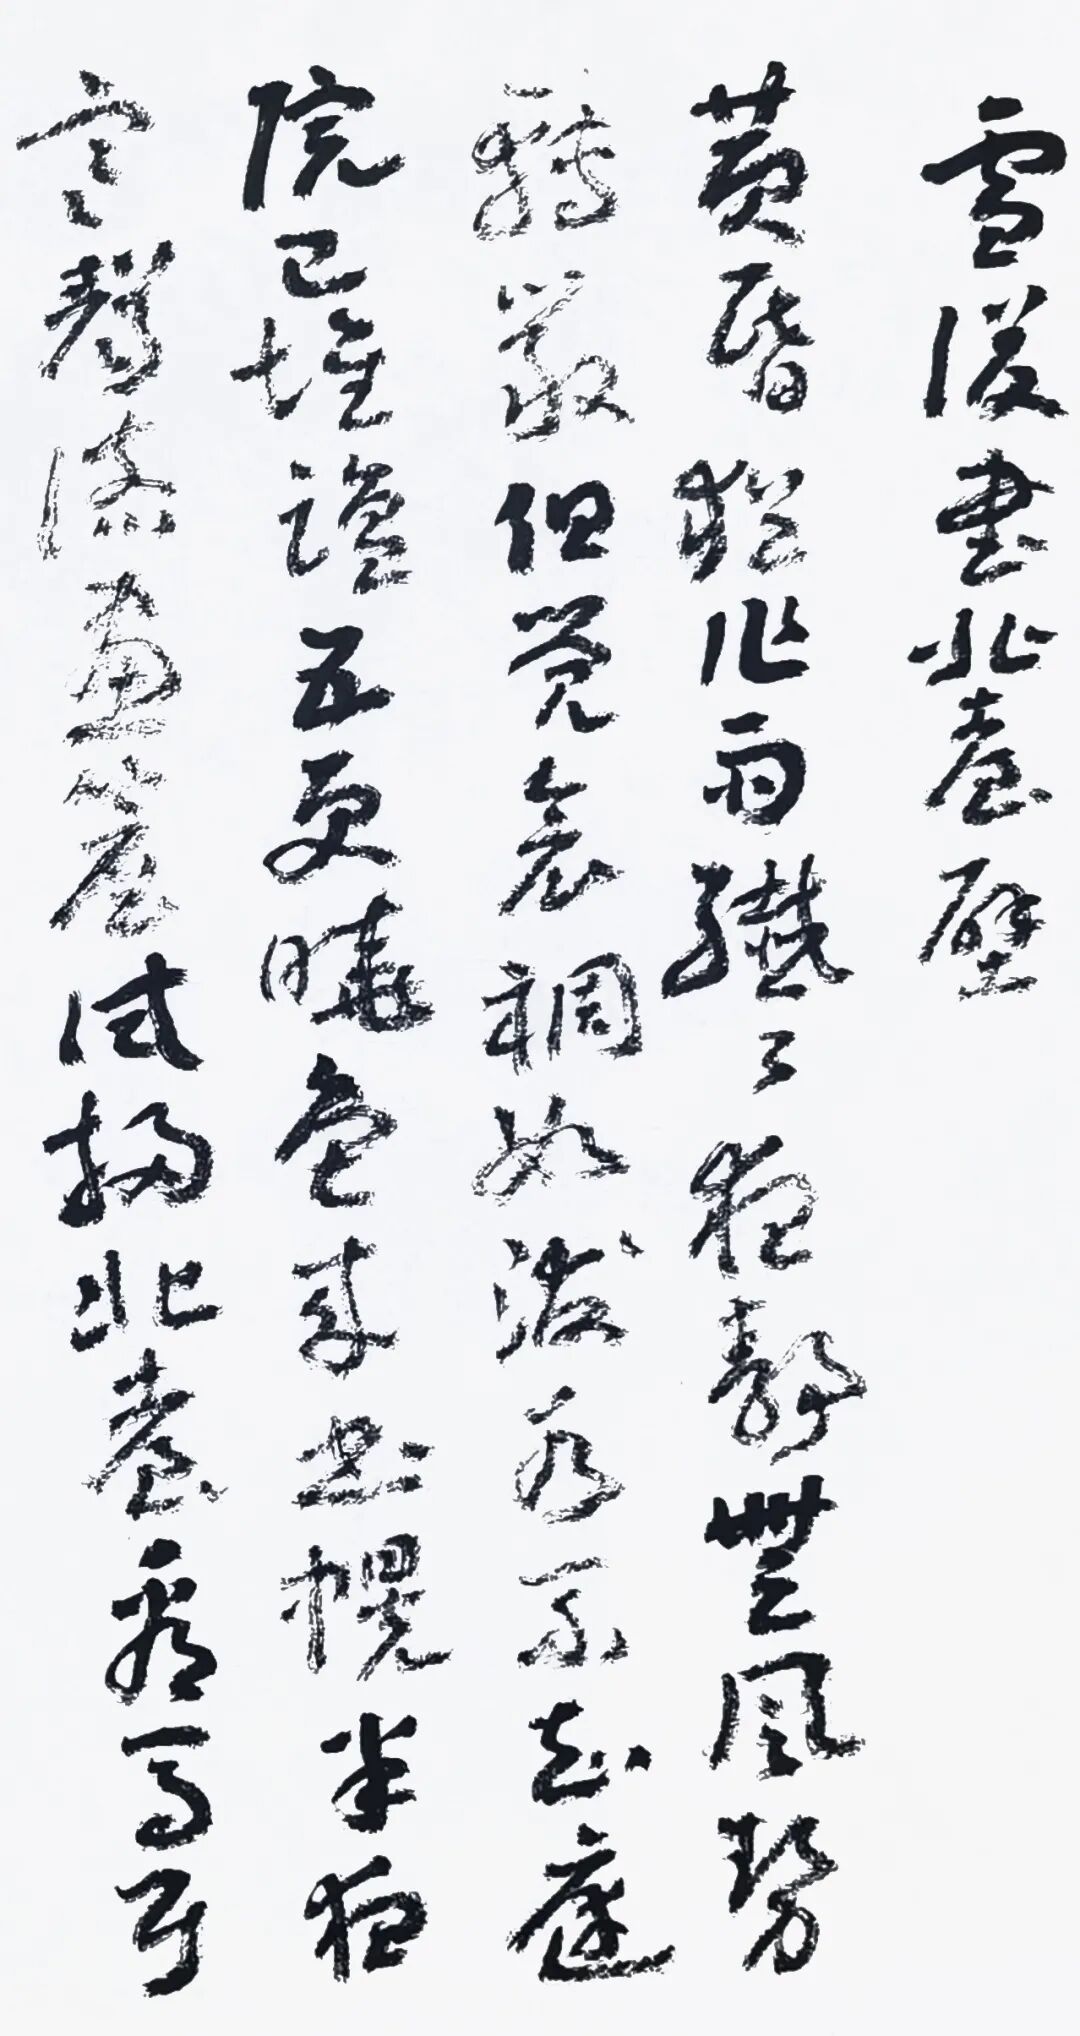 雪後書北臺壁
黄昏猶作雨纖〻夜靜無風勢
轉嚴但覺衾裯如潑水不知庭
院已堆鹽五更曉色来書幌半夜
寒聲落畫簷試掃北臺看馬耳